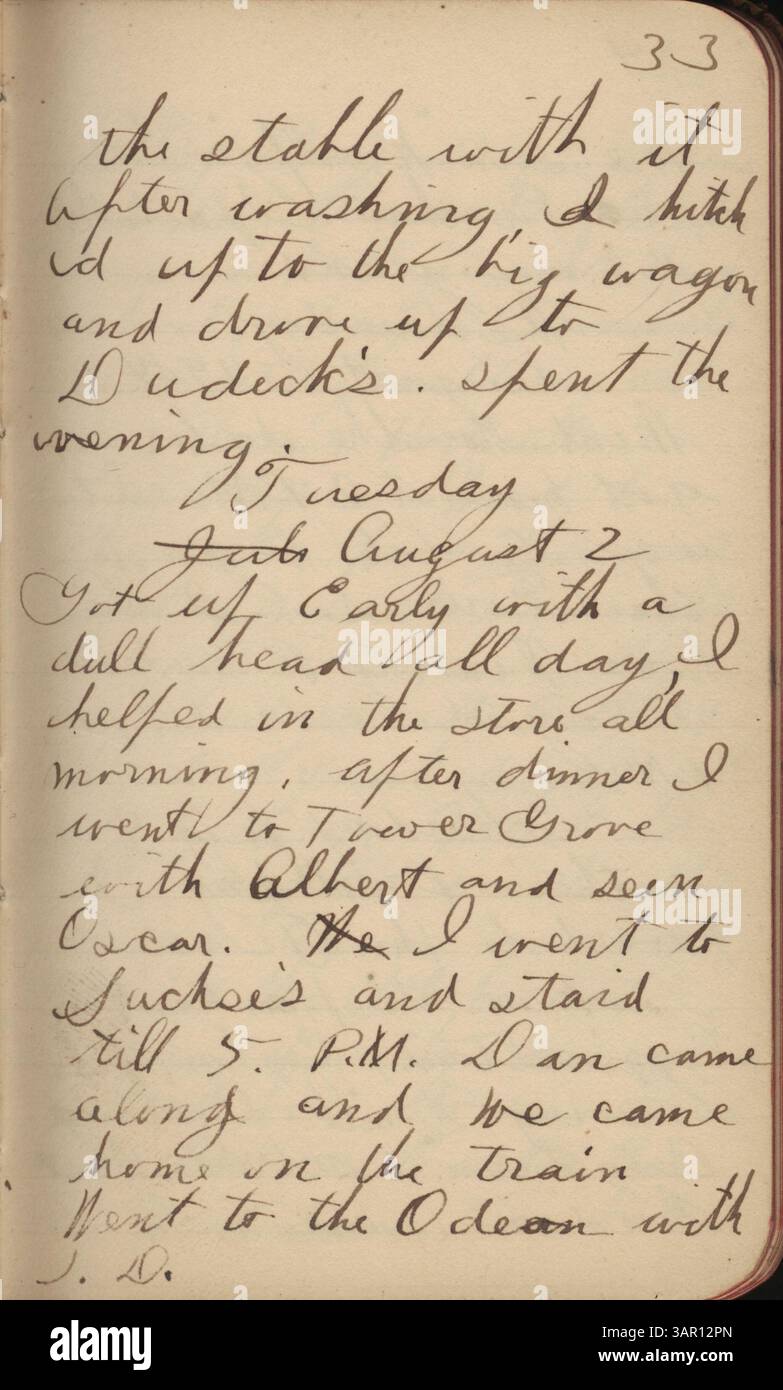 33
the stable with it
After washing, I hitch
ed up to the big wagon
and drove up to
Dudeck's. spent the
evening.
Tuesday
July August 2
Got up Early with a
dull head all day, I
helped in the store all
morning. after dinner I
went to Tower Grove
with Albert and seen
Oscar. We I went to
and staid
till 5. P.M. Dan came
along and we came
home on the train
Went to the Odean with
J. D.
alamy
Image ID: 3AR12PN
www.alamy.com